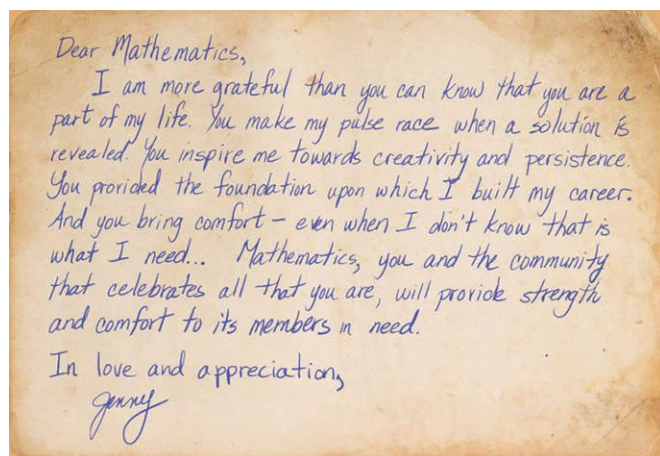 Dear Mathematics,
I am more grateful than you can know that you are a
part of my life. You make my pulse race when a solution is
revealed. You inspire me towards creativity and persistence.
You provided the foundation upon which I built my career.
And you bring comfort – even when I don't know that is
what I need... Mathematics, you and the community
that celebrates all that you are, will provide strength
and comfort to its members in need.
In love and appreciation,
Jenny